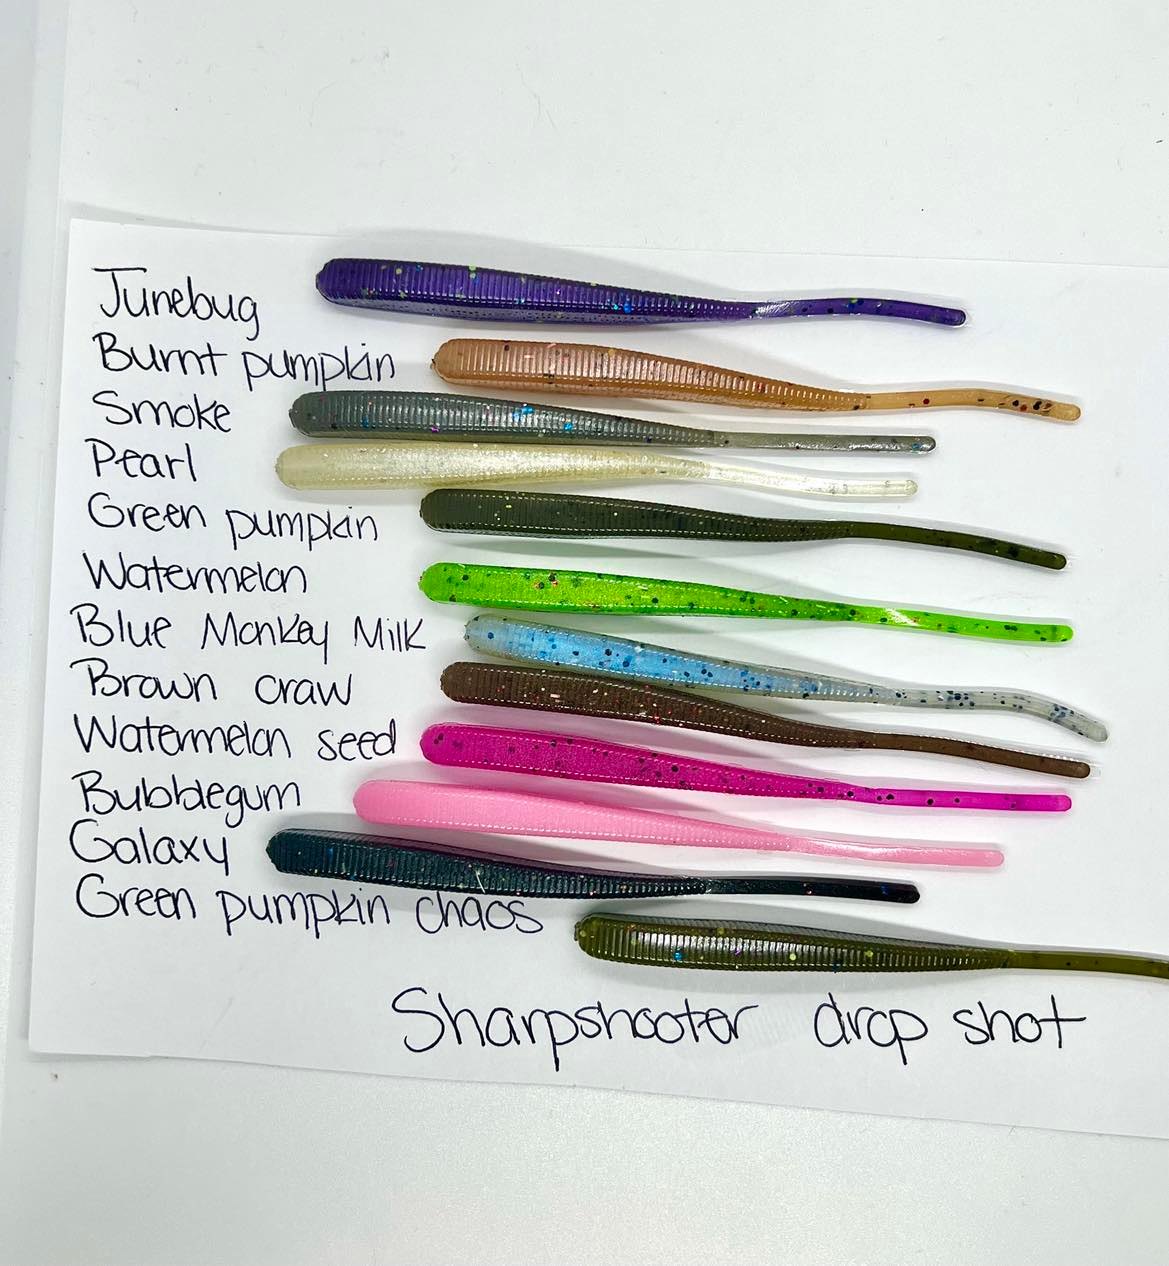 Junebug
Burnt pumpkin
Smoke
Pearl
Green pumpkin
Watermelon
Blue Monkey Milk
Brown craw
Watermelon seed
Bubblegum
Galaxy
Green pumpkin chaos
Sharpshooter drop shot